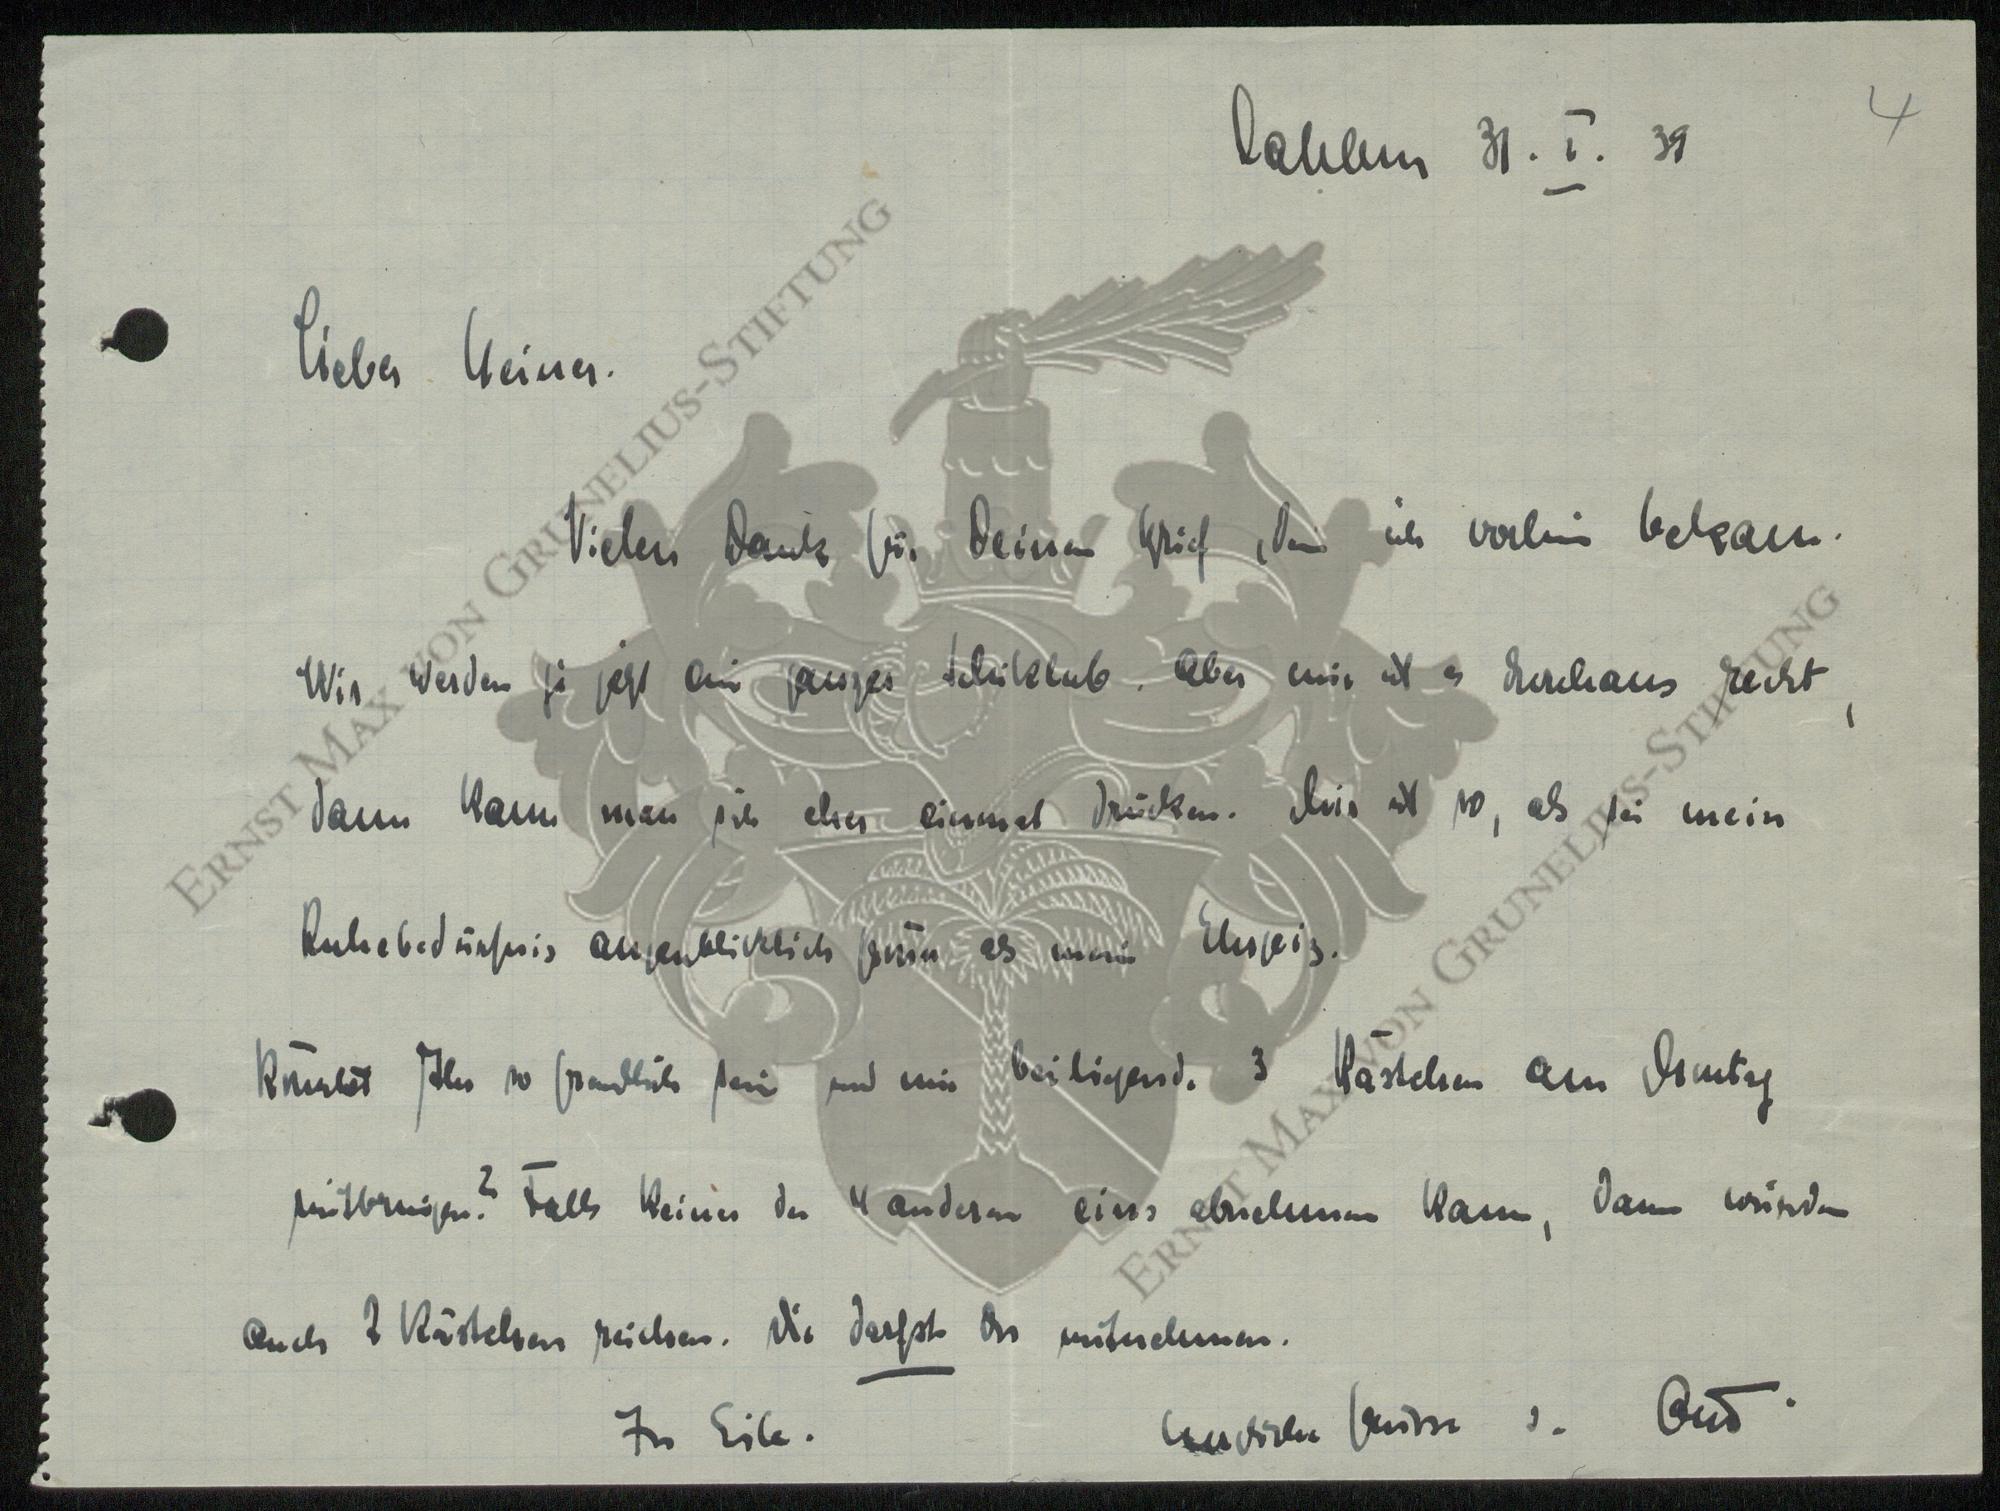 4
Dahlem 31. I. 39
Lieber Heiner.
Vielen Dank für Deinen Brief, den ich vorhin bekam.
Wir werden ja jetzt ein ganzer Schiklub. Aber mir ist es durchaus recht,
dann kann man sich eher einmal drücken. Mir ist so, als sei mein
Ruhebedürfnis augenblicklich größer als mein Ehrgeiz.
Könntet Ihr so freundlich sein und mir beiliegende 3 Kästchen am
mitbringen? Falls keiner der 4 anderen eins abnehmen kann, dann würden
auch 2 Kästchen reichen. Die darfst Du mitnehmen.
In Eile.
Herzliche Grüsse
ERNST MAX VON GRUNELIUS-STIFTUNG
ERNST MAX VON GRUNELIUS-STIFTUNG